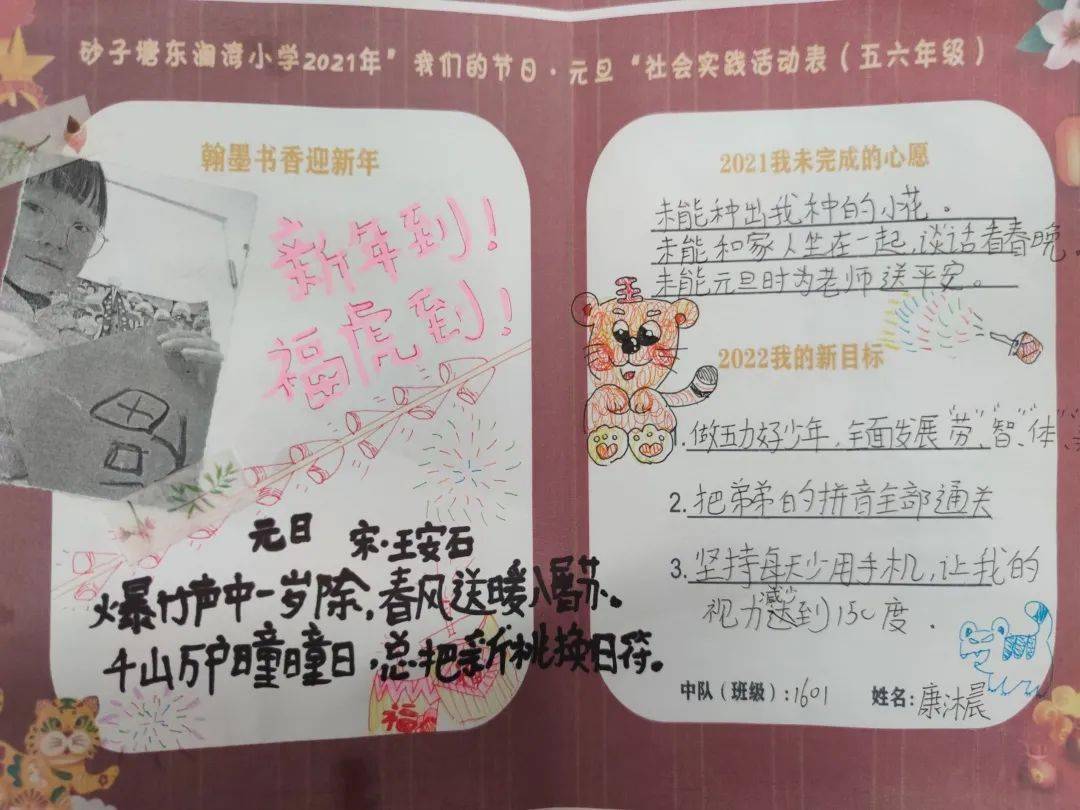 砂子塘东澜湾小学2021年”我们的节日·元旦“社会实践活动表（五六年级）
翰墨书香迎新年
新年到！
福虎到！
元日 宋·王安石
爆竹声中一岁除，春风送暖入屠苏。
千山万户瞳瞳日，总把新桃换旧符。
福
2021我未完成的心愿
未能种出我种的小花。
未能和家人坐在一起，谈话看春晚。
未能元旦时为老师送平安。
王
2022我的新目标
1.做五力好少年，全面发展劳、智、体、
2.把弟弟的拼音全部通关
3.坚持每天少用手机，让我的
视力减少到150度.
中队（班级）:1601 姓名:康沐晨